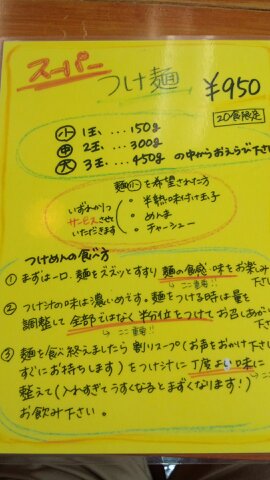 スーパー
つけ麺 ¥950
20食限定
小 1玉....150g
中 2玉....300g
大 3玉....450g の中からおえらび下さい
麺(小)を希望された方
いずれか1つサービスさせていただきます
・半熟味付け玉子
・めんま
・チャーシュー
つけめんの食べ方
① まずは一口、麺をズズッとすすり 麺の食感、味をお楽しみ下さい
ここ重要!!
② つけ汁の味は濃いめです。麺をつける時は量を
調整して全部ではなく半分位をつけてお召しあがり下さい
ここ重要!!
③ 麺を食べ終えましたら割りスープ(お声をおかけ下さい
すぐにお持ちします)をつけ汁に丁度よい味に
整えて(入れすぎてうすくなるとまずくなります!)
お飲み下さい。